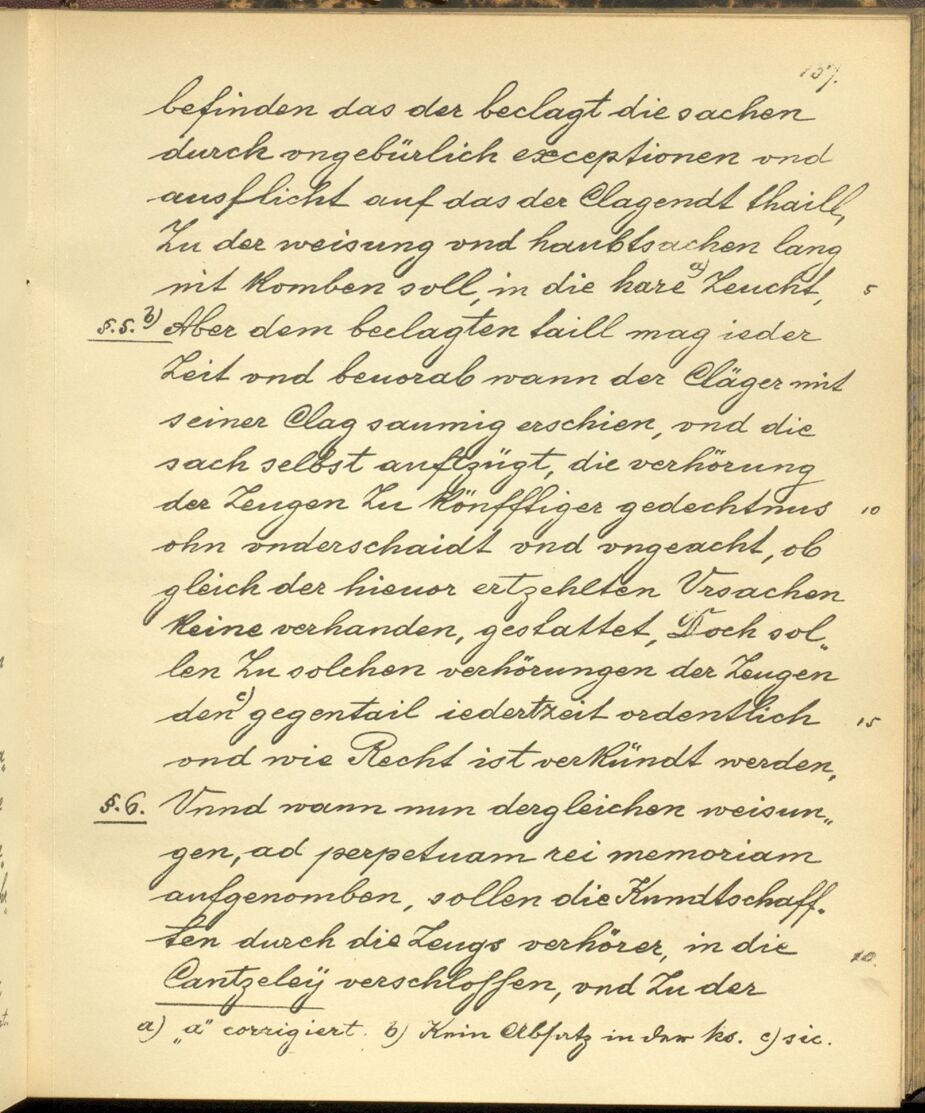 157.
befinden das der beclagt die sachen
durch vngebürlich exceptionen vnd
ausflicht auf das der Clagendt thaill,
Zu der weisung vnd haubtsachen lang
nit komben soll, in die hare a) Zeucht, 5
§.5. b) Aber dem beclagten taill mag ieder
Zeit vnd beuorab wann der Cläger mit
seiner Clag saumig erschien, vnd die
sach selbst auftzügt, die verhörung
der Zeugen Zu könfftiger gedechtnus 10
ohn vnderschaidt vnd vngeacht, ob
gleich der hieuor ertzehlten Vrsachen
keine verhanden, gestattet, Doch sol„
len Zu solchen verhörungen der Zeugen
den c) gegentail iedertzeit ordentlich 15
vnd wie Recht ist verkündt werden,
§.6. Vnnd wann nun dergleichen weisun„
gen, ad perpetuam rei memoriam
aufgenomben, sollen die Kundtschaff„
ten durch die Zeugs verhörer, in die 20
Cantzeleÿ verschloffen, vnd Zu der
a) „a“ corrigiert. b) Kein Absatz in der Hs. c) sic.